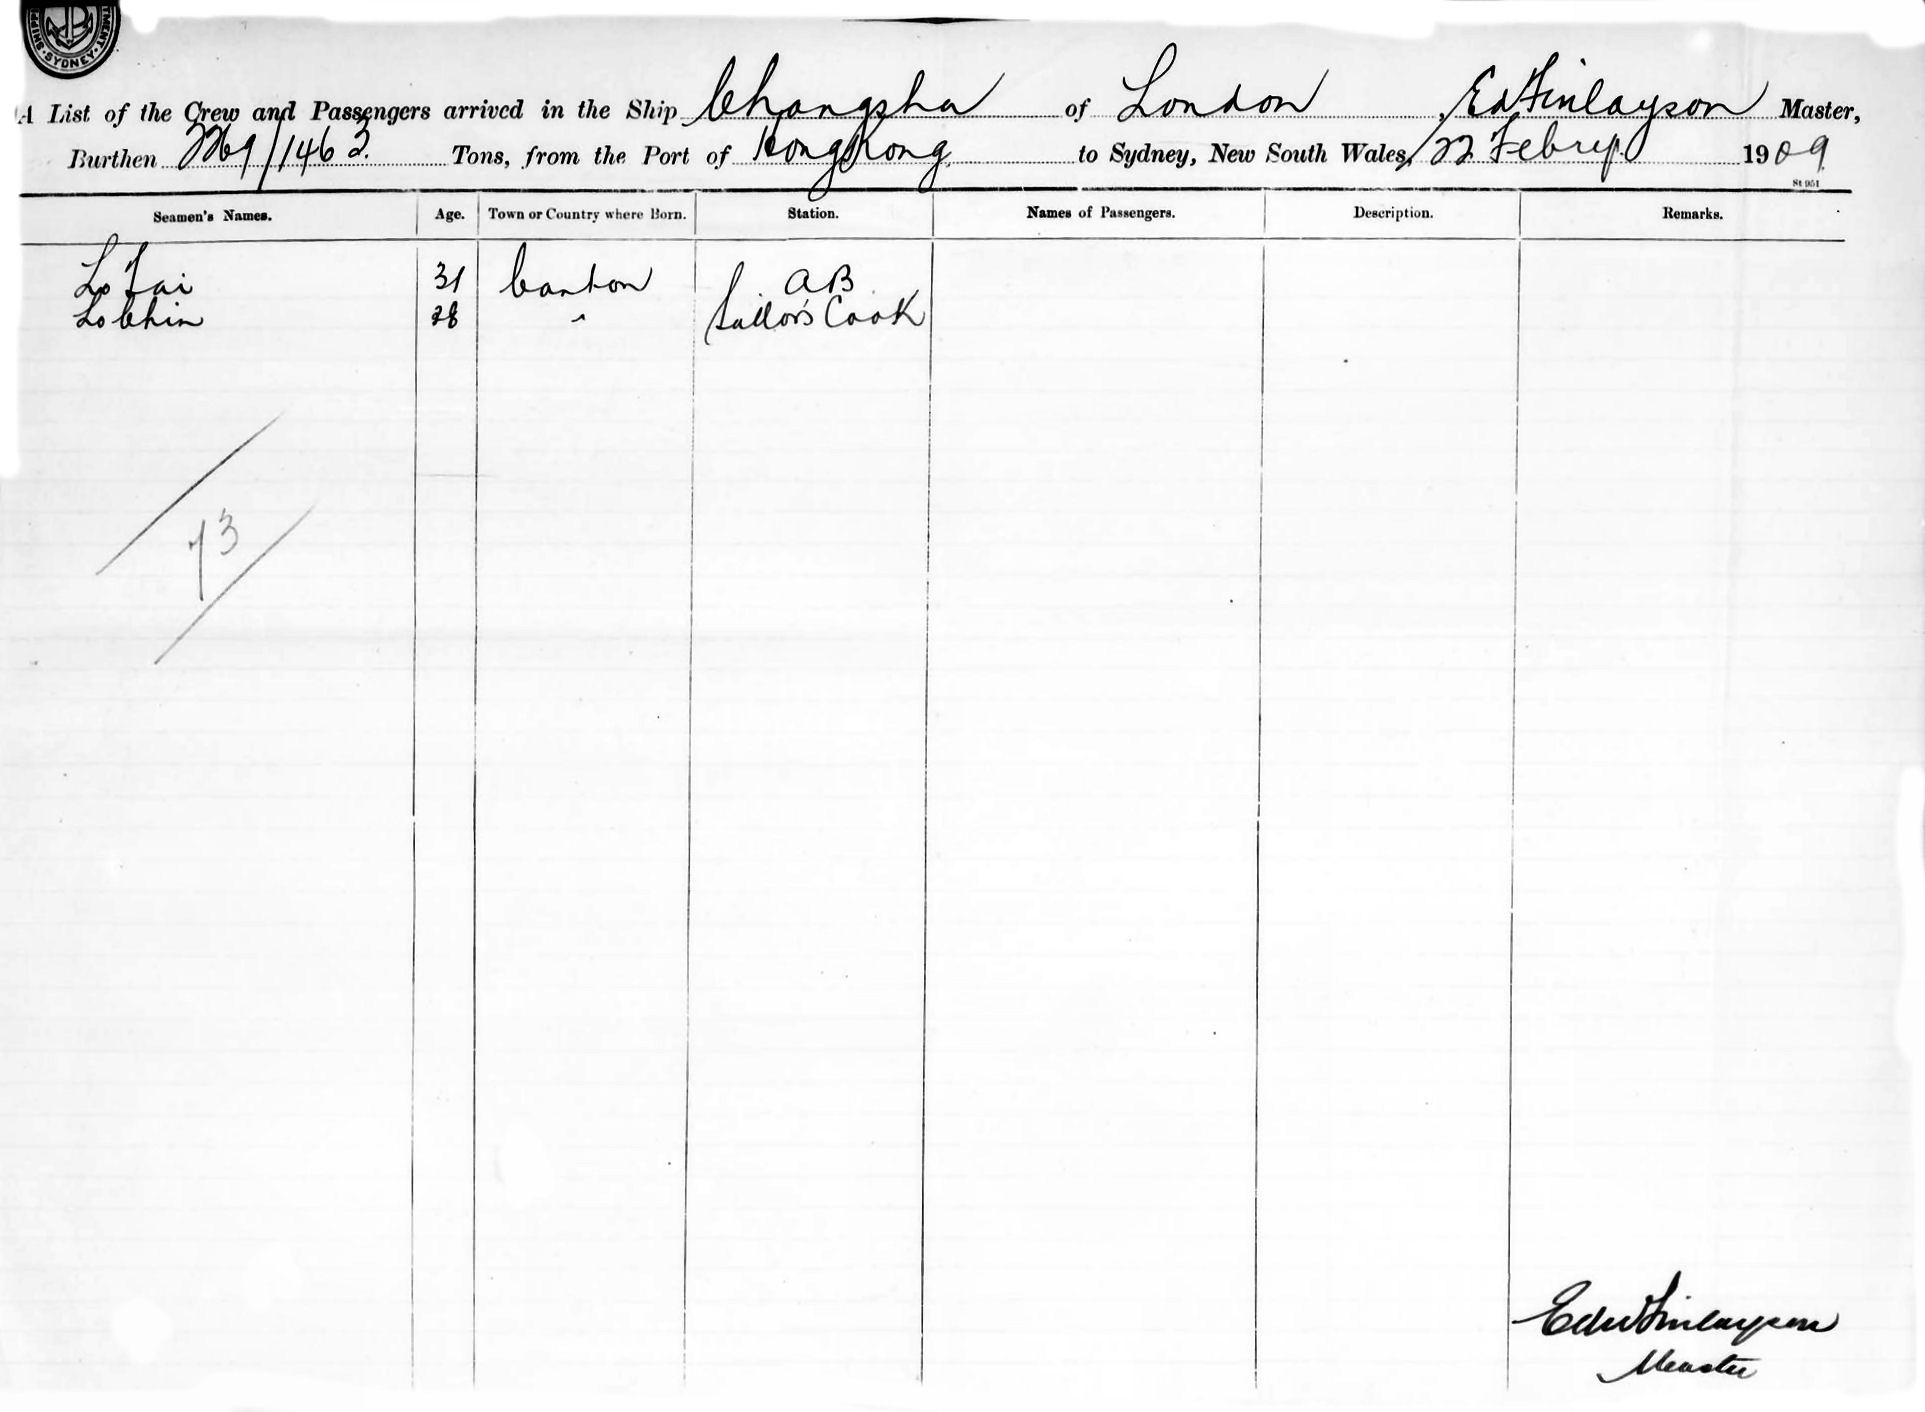 SHIPPING · SYDNEY
A List of the Crew and Passengers arrived in the Ship Changsha of London, Ed Finlayson Master,
Burthen 2269/1463. Tons, from the Port of Hong Kong to Sydney, New South Wales, 22 Febry. 1909
St 951
Seamen's Names. Age. Town or Country where Born. Station. Names of Passengers. Description. Remarks.
Lo Fai 31 Canton AB
Lo Chin 28 " Sailor's Cook
73
Edw Finlayson
Master